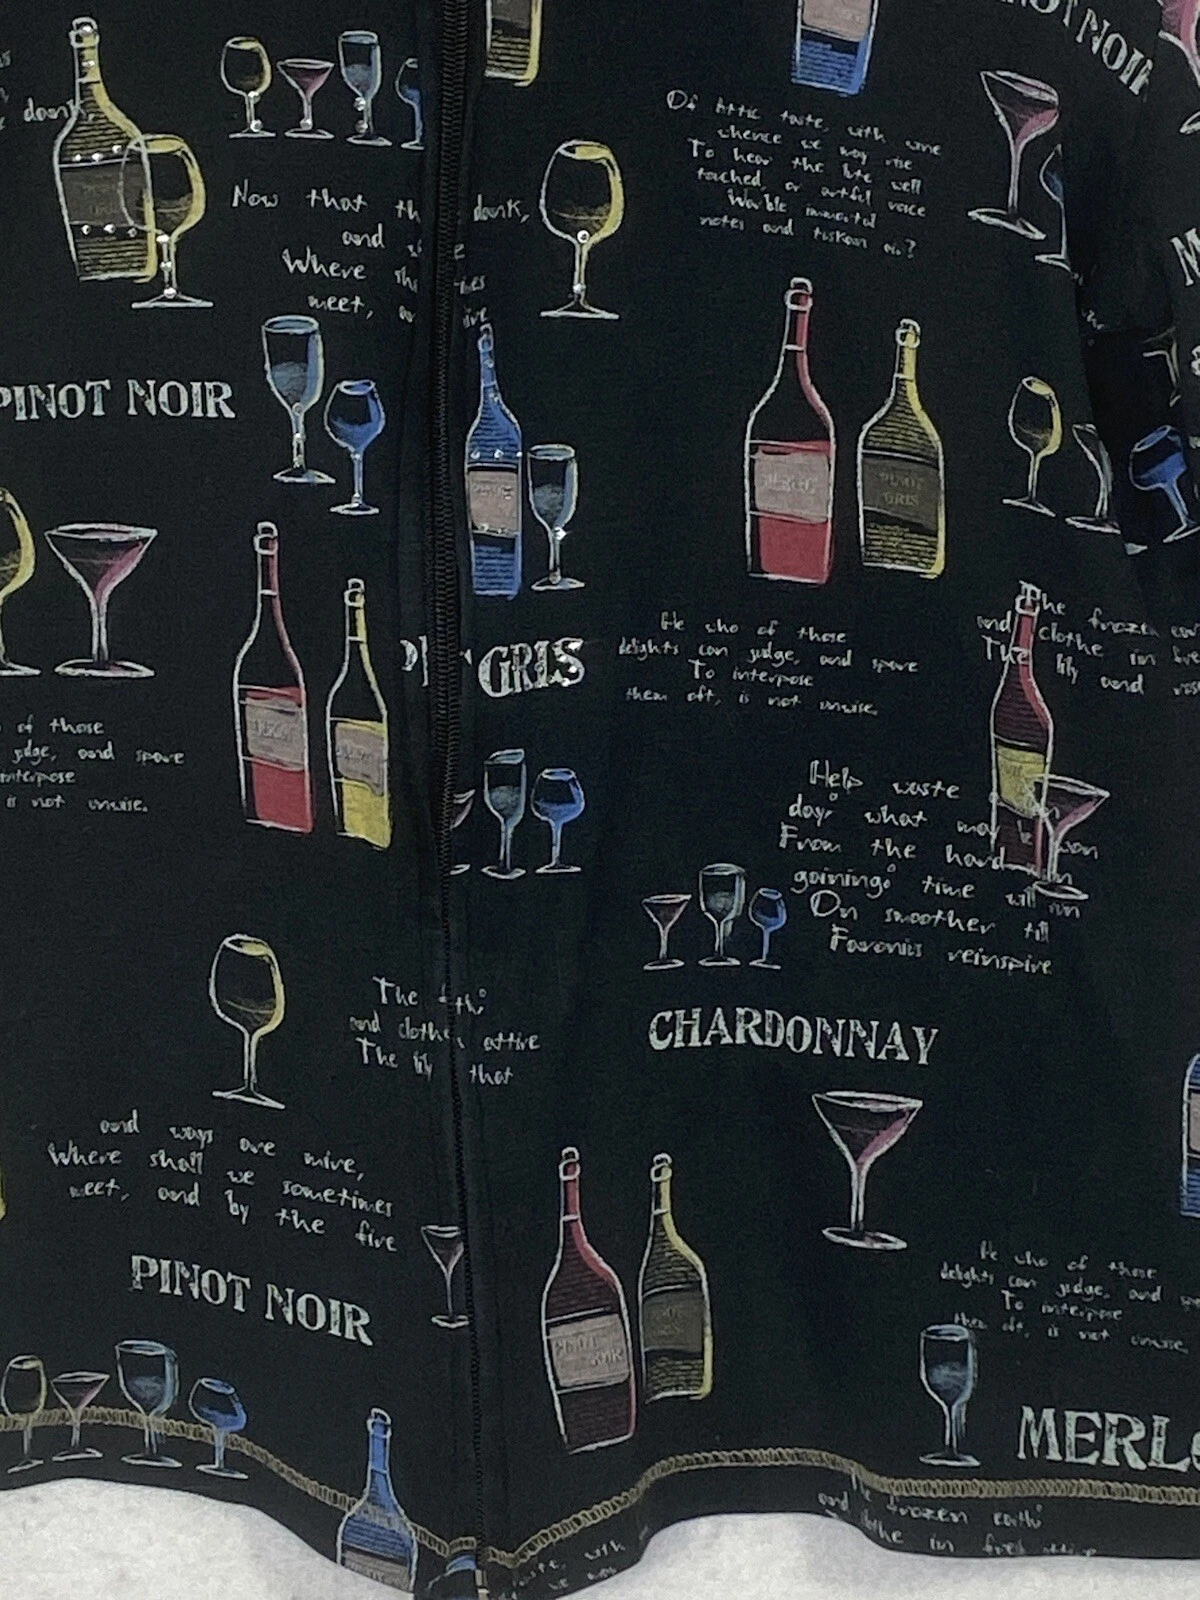 PINOT NOIR
dank,
Now that th dank,
and
Where sh
meet,
Of Attic taste, with wine
whence we may rise
To hear the lute well
touched, or artful voice
Warble immortal
notes and tuskan air?
PINOT NOIR
PINOT
GRIS
GRIS
He who of those
delights can judge, and spare
To interpose
them oft, is not unwise.
The frozen
and clothe in
The lily and
of those
judge, and spare
interpose
is not unwise.
Help waste
day; what may be won
From the hard
goining? time will run
On smoother till
Favonius reinspire
The
and clothe attire
The lily that
CHARDONNAY
and ways are mire,
Where shall we sometimes
meet, and by the fire
PINOT NOIR
PINOT
NOIR
He who of those
delights can judge, and
To interpose
them oft, is not unwise.
MERLO
frozen earth
and clothe in
with